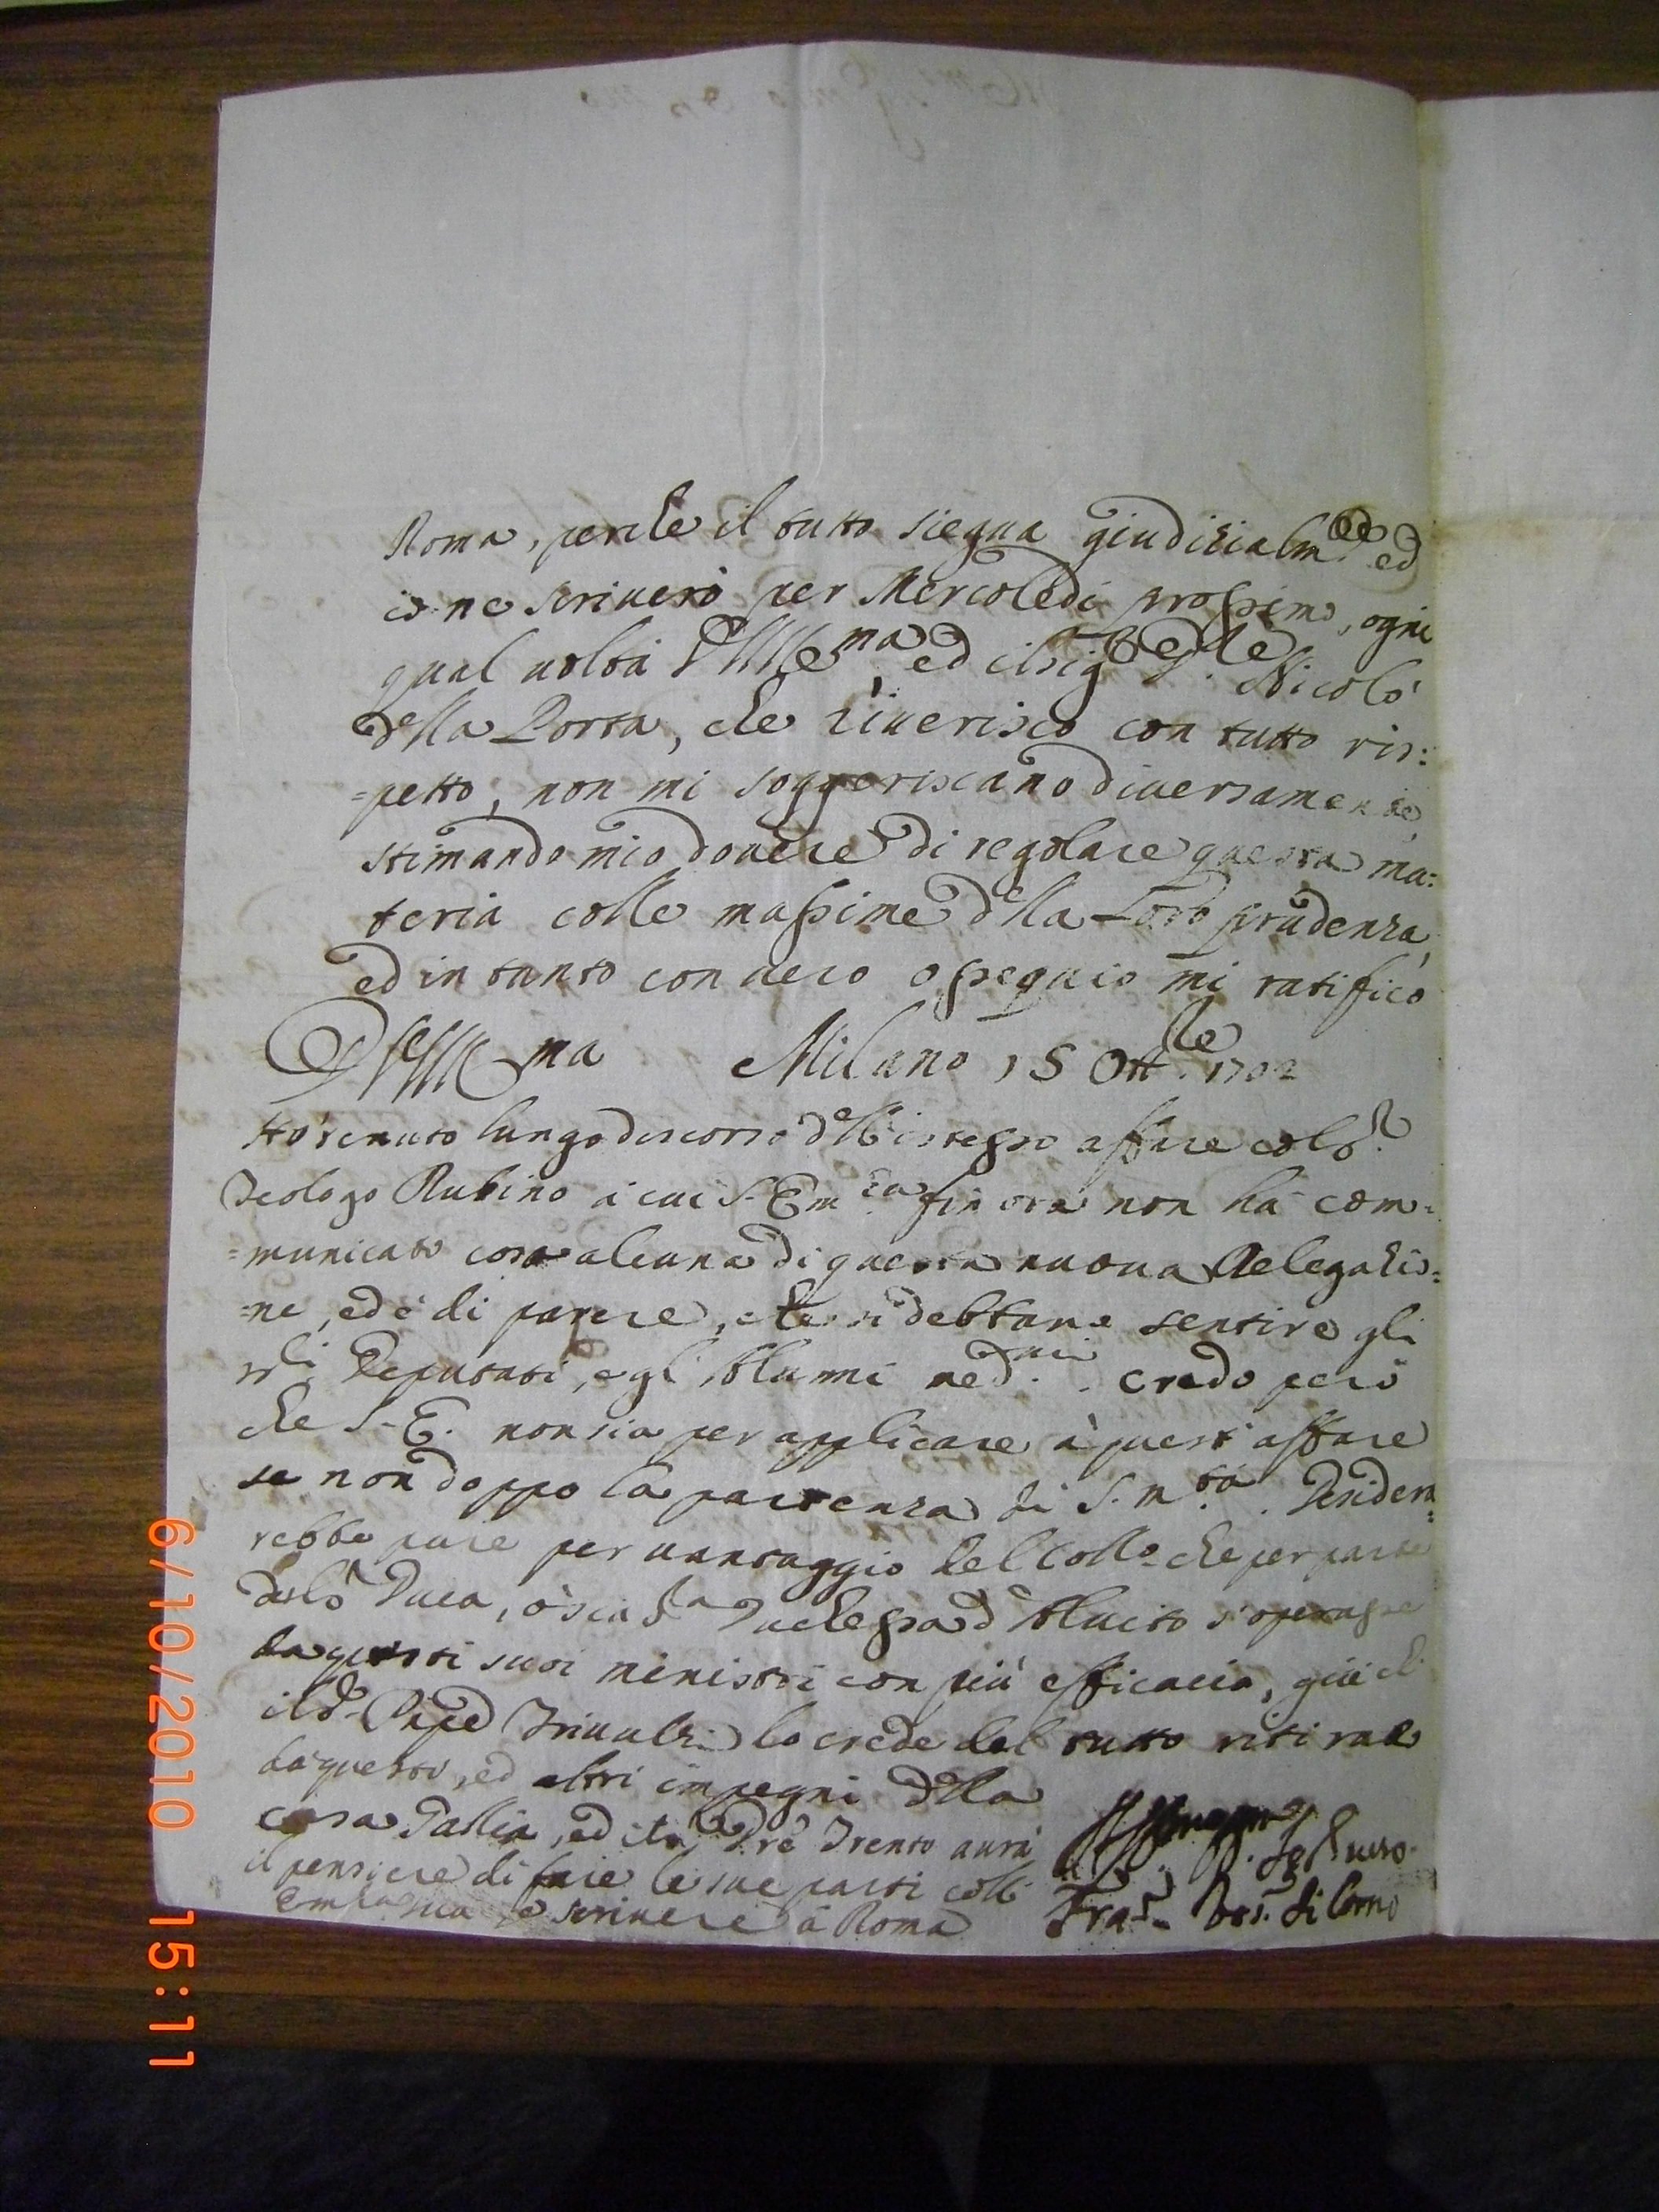 Roma, perche il tutto siegua giudizialm.te ed
io ne scriverò per Mercoledi prossimo, ogni
qual volta V.S. Ill.ma, ed il sig.r Nicolò
della Porta, che riverisco con tutto ris:
=petto, non mi soggeriscano diversamente,
stimando mio dovere di regolare questa ma:
teria colle massime d'lla Loro prudenza,
ed in tanto con vero ossequio mi ratifico
V.S. Ill.ma Milano 15 Ott.bre 1702
Hò tenuto lungo discorso dell'istesso affare col S.r
Teologo Rubino à cui S. Em.za fin ora non hà com=
=municato cosa alcuna di questa nuova Delegazio=
=ne, ed è di parere, che si debbano sentire gli
ss.ri Deputati, e gl'Alunni med.mi. credo però
che S. E. non sia per applicare à quest'affare
se non doppo la partenza di S. M.tà. Desidera=
rebbe pure per vantaggio del Coll.o che per parte
del S.r Duca, ò sia S.ra Duchessa d'Alvito s'operasse
da questi suoi ministri con più efficacia, già ch
il S.r Trivulzi lo crede del tutto ritirato
da questo, ed altri impegni d'lla
casa Gallia, ed il P.re Trento avrà
il pensiere di fare le sue parti coll'
Em.za sua e scrivere à Roma
Fra.co di Corno
6/10/2010 15:11